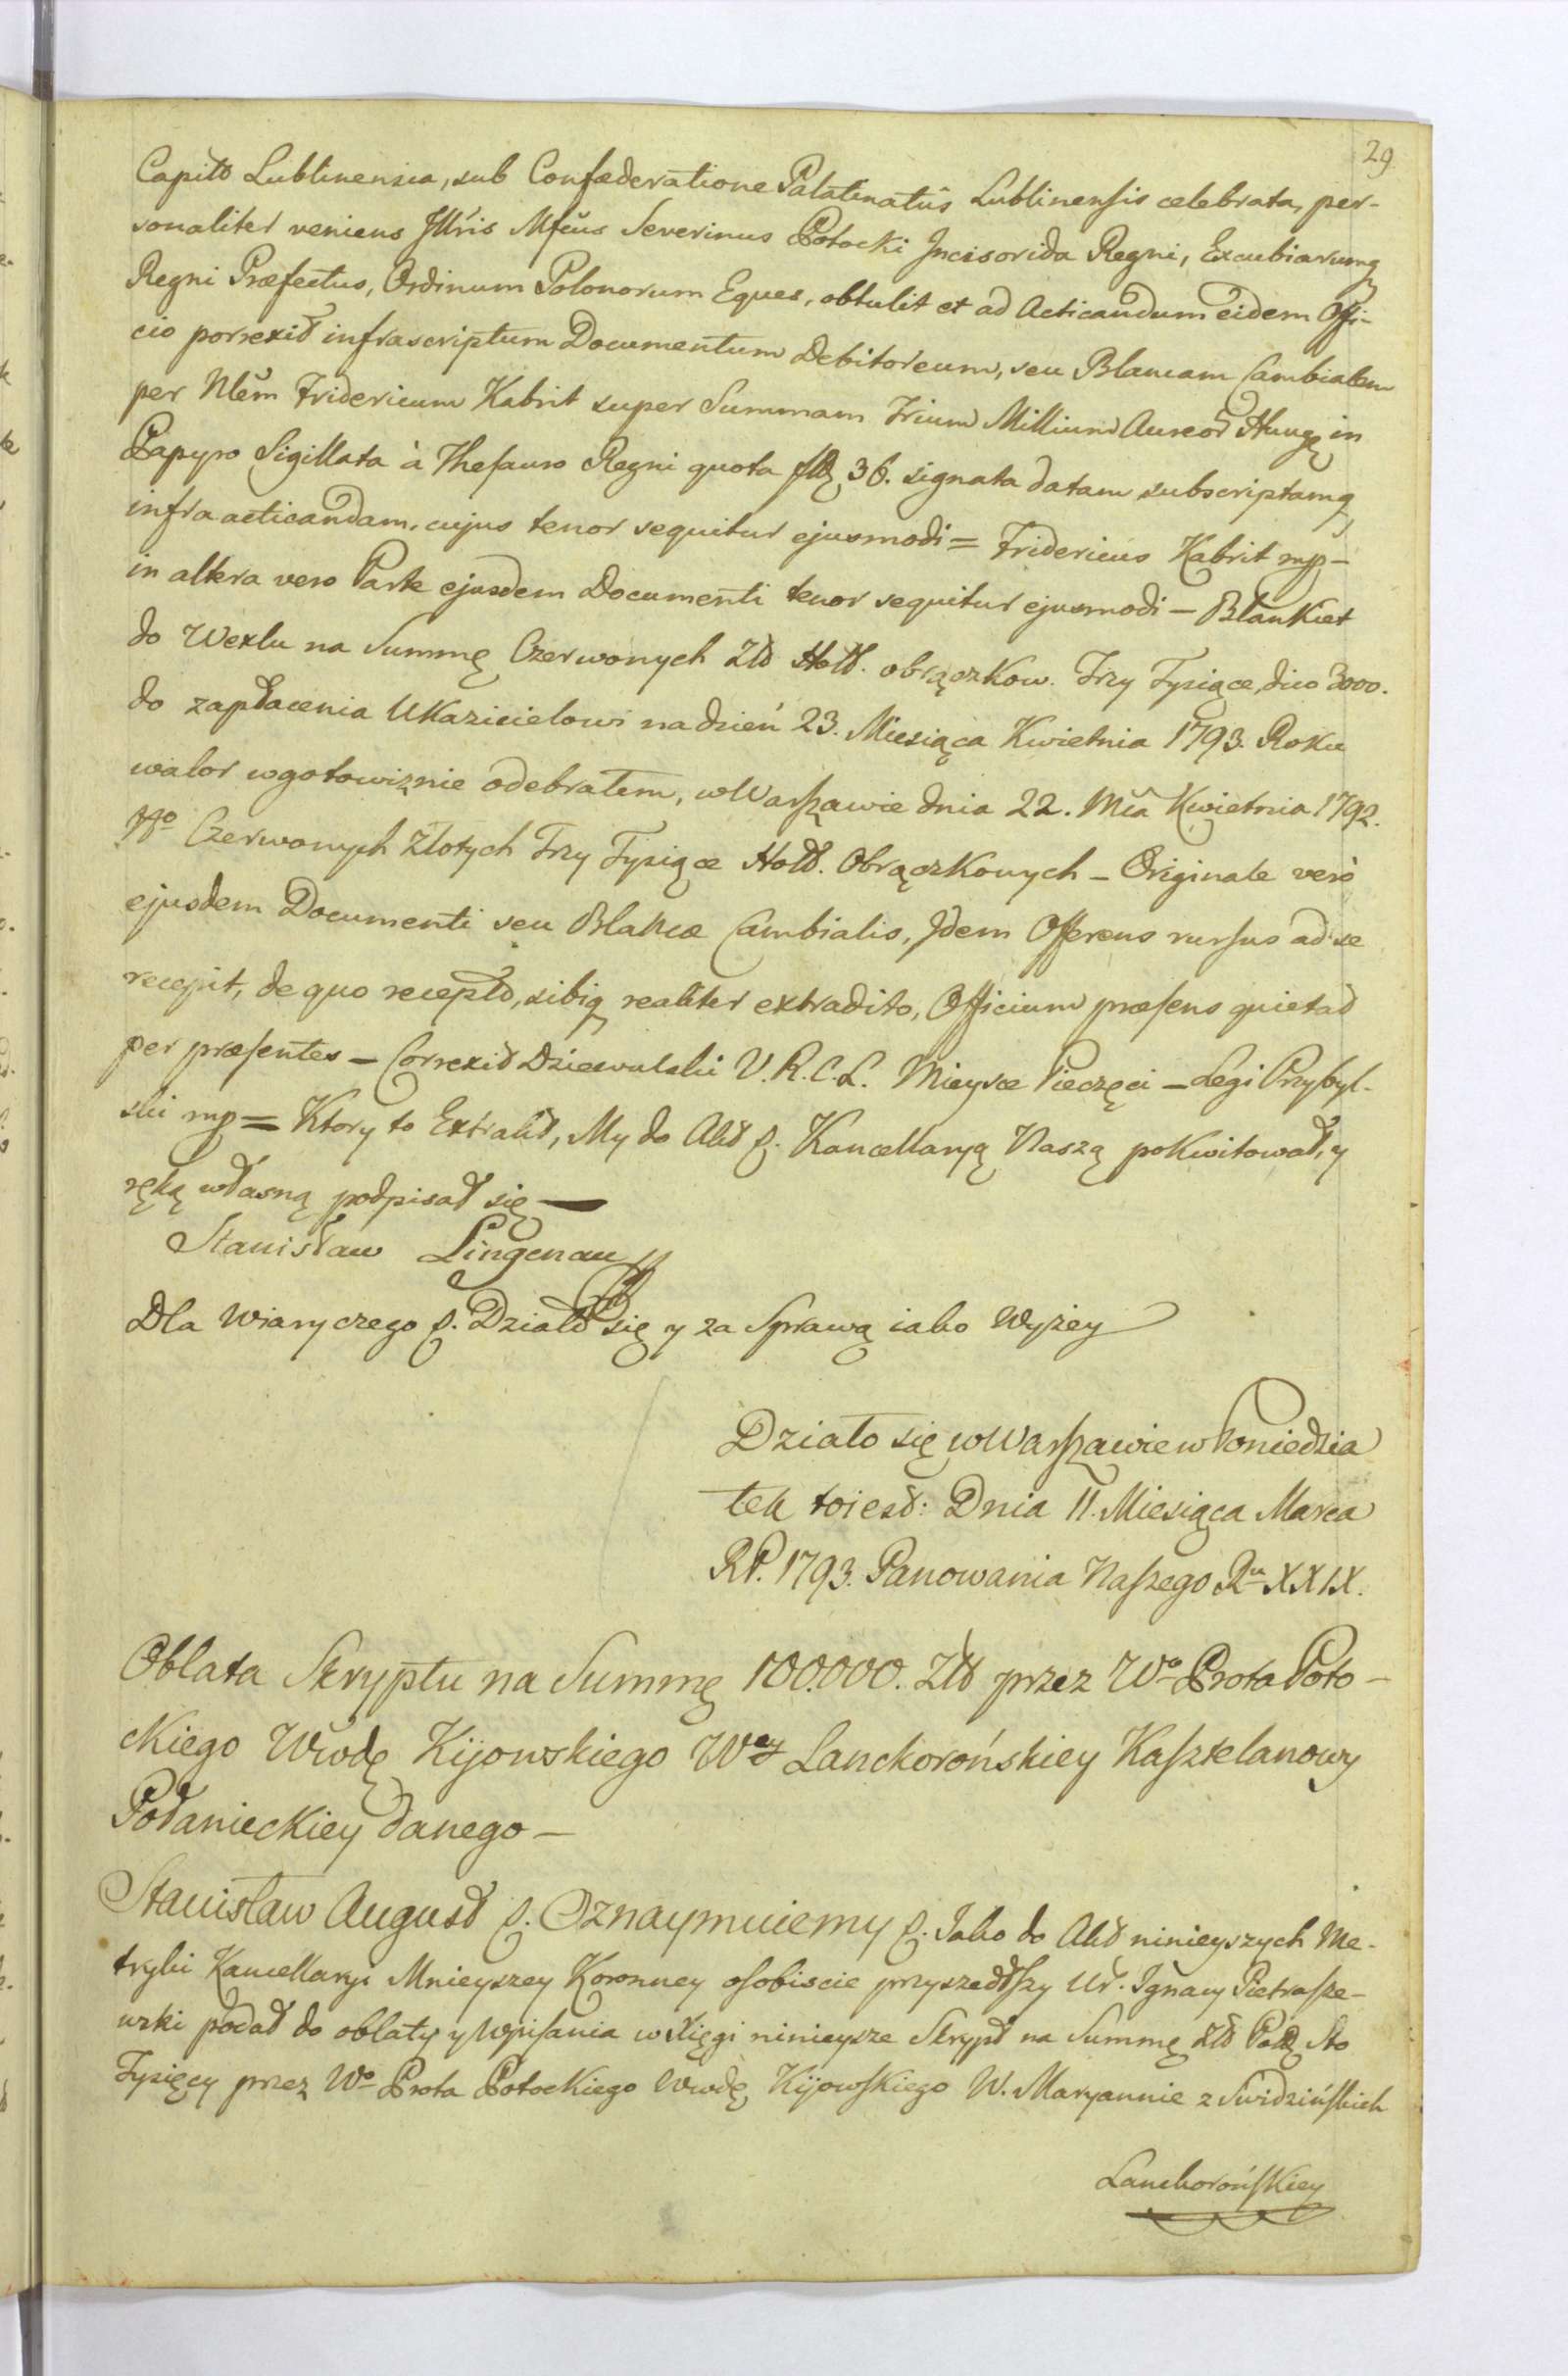 29
Capitlo Lublinensia, sub Confæderatione Palatinatûs Lublinensis celebrata, per-
sonaliter veniens Jllŕis Mfčus Severinus Potocki Jncisorida Regni, Excubiarumq
Regni Præfectus, Ordinum Polonorum Eques, obtulit et ad Acticandum eidem Offi-
cio porrexit infrascriptum Documentum Debitoreum, seu Blancam Cambialem
per Nlem Fridericum Kabrit super Summam Trium Millium Aureor Hung in
Papyro Sigillata à Thesauro Regni quota fl 36. signata datam subscriptamq
infra acticandam, cujus tenor sequitur ejusmodi = Fridericus Kabrit mp –
in altera vero Parte ejusdem Documenti tenor sequitur ejusmodi – Blankiet
do Wexlu na Summę Czerwonych Zlł Holl. obrączkow. Trzy Tysiące, dico 3000.
do zapłacenia Ukazicielowi na dzień 23. Miesiąca Kwietnia 1793. Roku
walor w gotowiznie odebrałem, w Warszawie dnia 22. Mca Kwietnia 1792.
No Czerwonych Złotych Trzy Tysiące Holl. Obrączkowych – Originale verò
ejusdem Documenti seu Blancæ Cambialis, Jdem Offerens rursus ad se
recepit, de quo recepto, sibiq realiter extradito, Officium præsens quietat
per præsentes – Correxit Dziewulski V.R.C.L. Mieysce Pieczęci – Legi Przybyl-
ski mp = Ktory to Extrakt, My do Akt p. Kancellaryą Naszą pokwitował, y
ręką własną podpisał się —
Stanisław Lingenau
Dla Wiary czego p. Działo się y za Sprawą iako Wyżey
Działo się w Warszawie w Poniedzia
łek toiest: Dnia 11. Miesiąca Marca
RP. 1793. Panowania Naszego Ru XXIX.
Oblata Skryptu na Summę 100.000. Złł przez Wo Prota Poto-
ckiego Wwodę Kijowskiego Wey Lanckorońskiey Kasztelanowy
Połanieckiey danego –
Stanisław August p. Oznaymuiemy p. Jako do Akt ninieyszych Me-
tryki Kancellaryi Mnieyszey Koronney osobiscie przyszedłszy Ur. Jgnacy Pietrasze-
wski podał do oblaty y wpisania w Xięgi ninieysze Skrypt na Summę Złł Pol Sto
Tysięcy przez Wo Prota Potockiego Wwodę Kijowskiego W. Maryannie z Swidzińskich
Lanckorońskiey